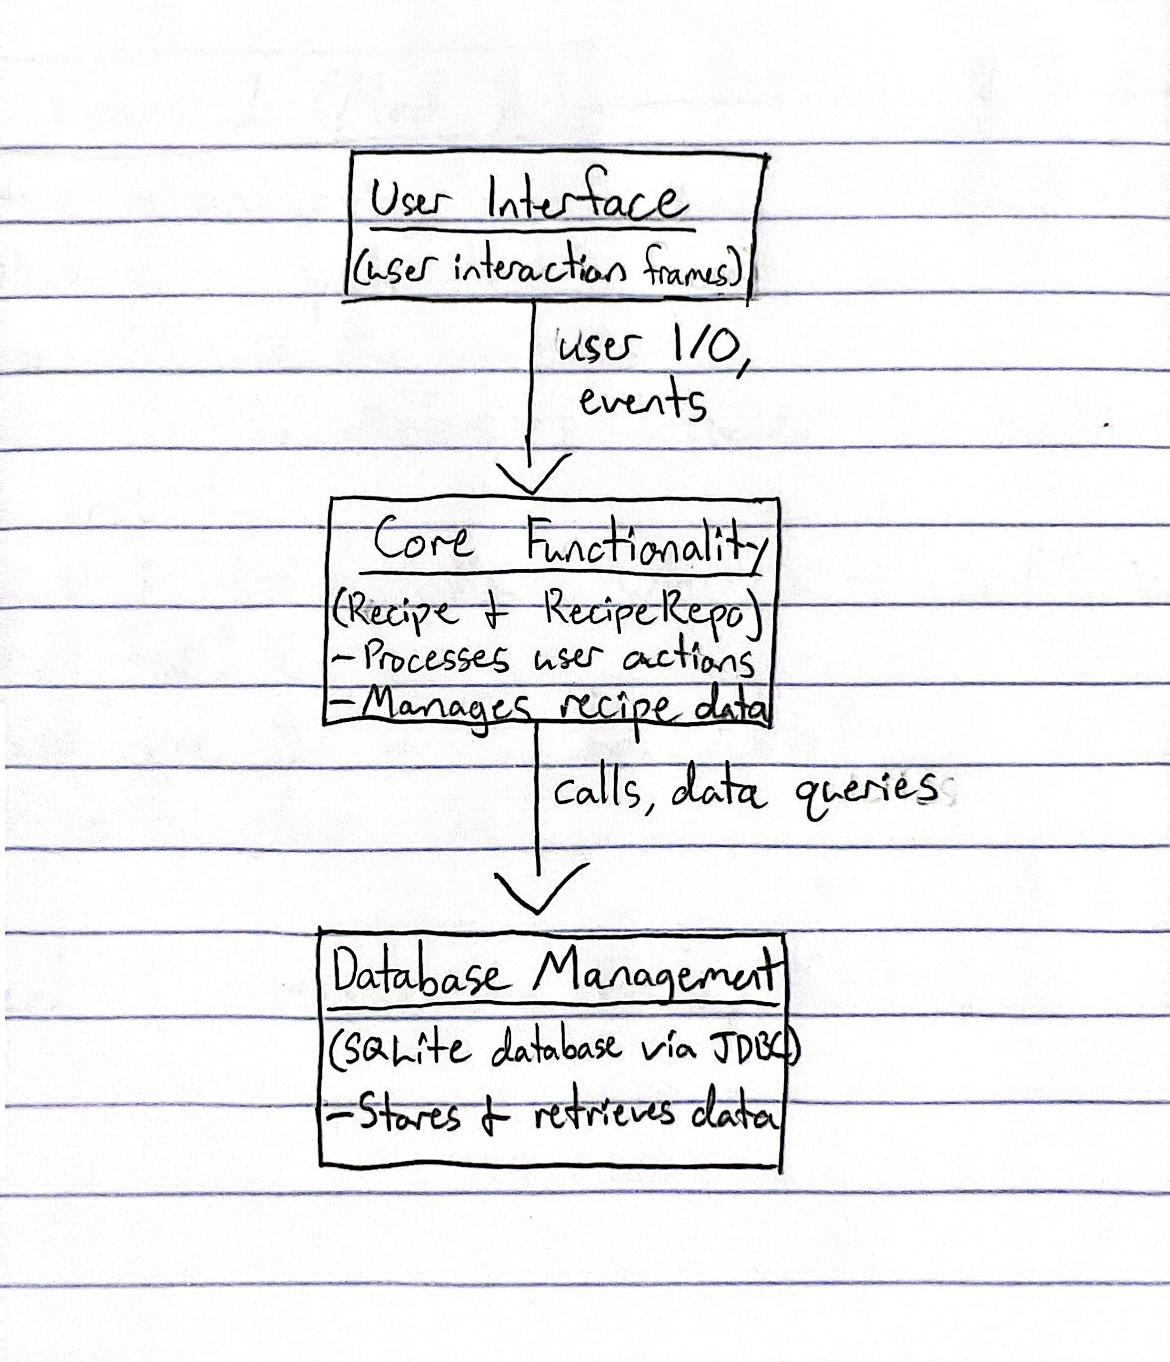 User Interface
(user interaction frames)
user I/O,
events
Core Functionality
(Recipe + RecipeRepo)
-Processes user actions
-Manages recipe data
calls, data queries
Database Management
(SQLite database via JDBC)
-Stores + retrieves data